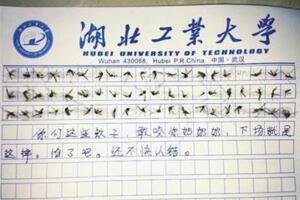 湖北工業大學
HUBEI UNIVERSITY OF TECHNOLOGY
Wuhan 430068, Hubei P.R.China 中国·武汉
你们这些蚊子，敢咬你奶奶，下场就是
这样，怕了吧。还不快认错。